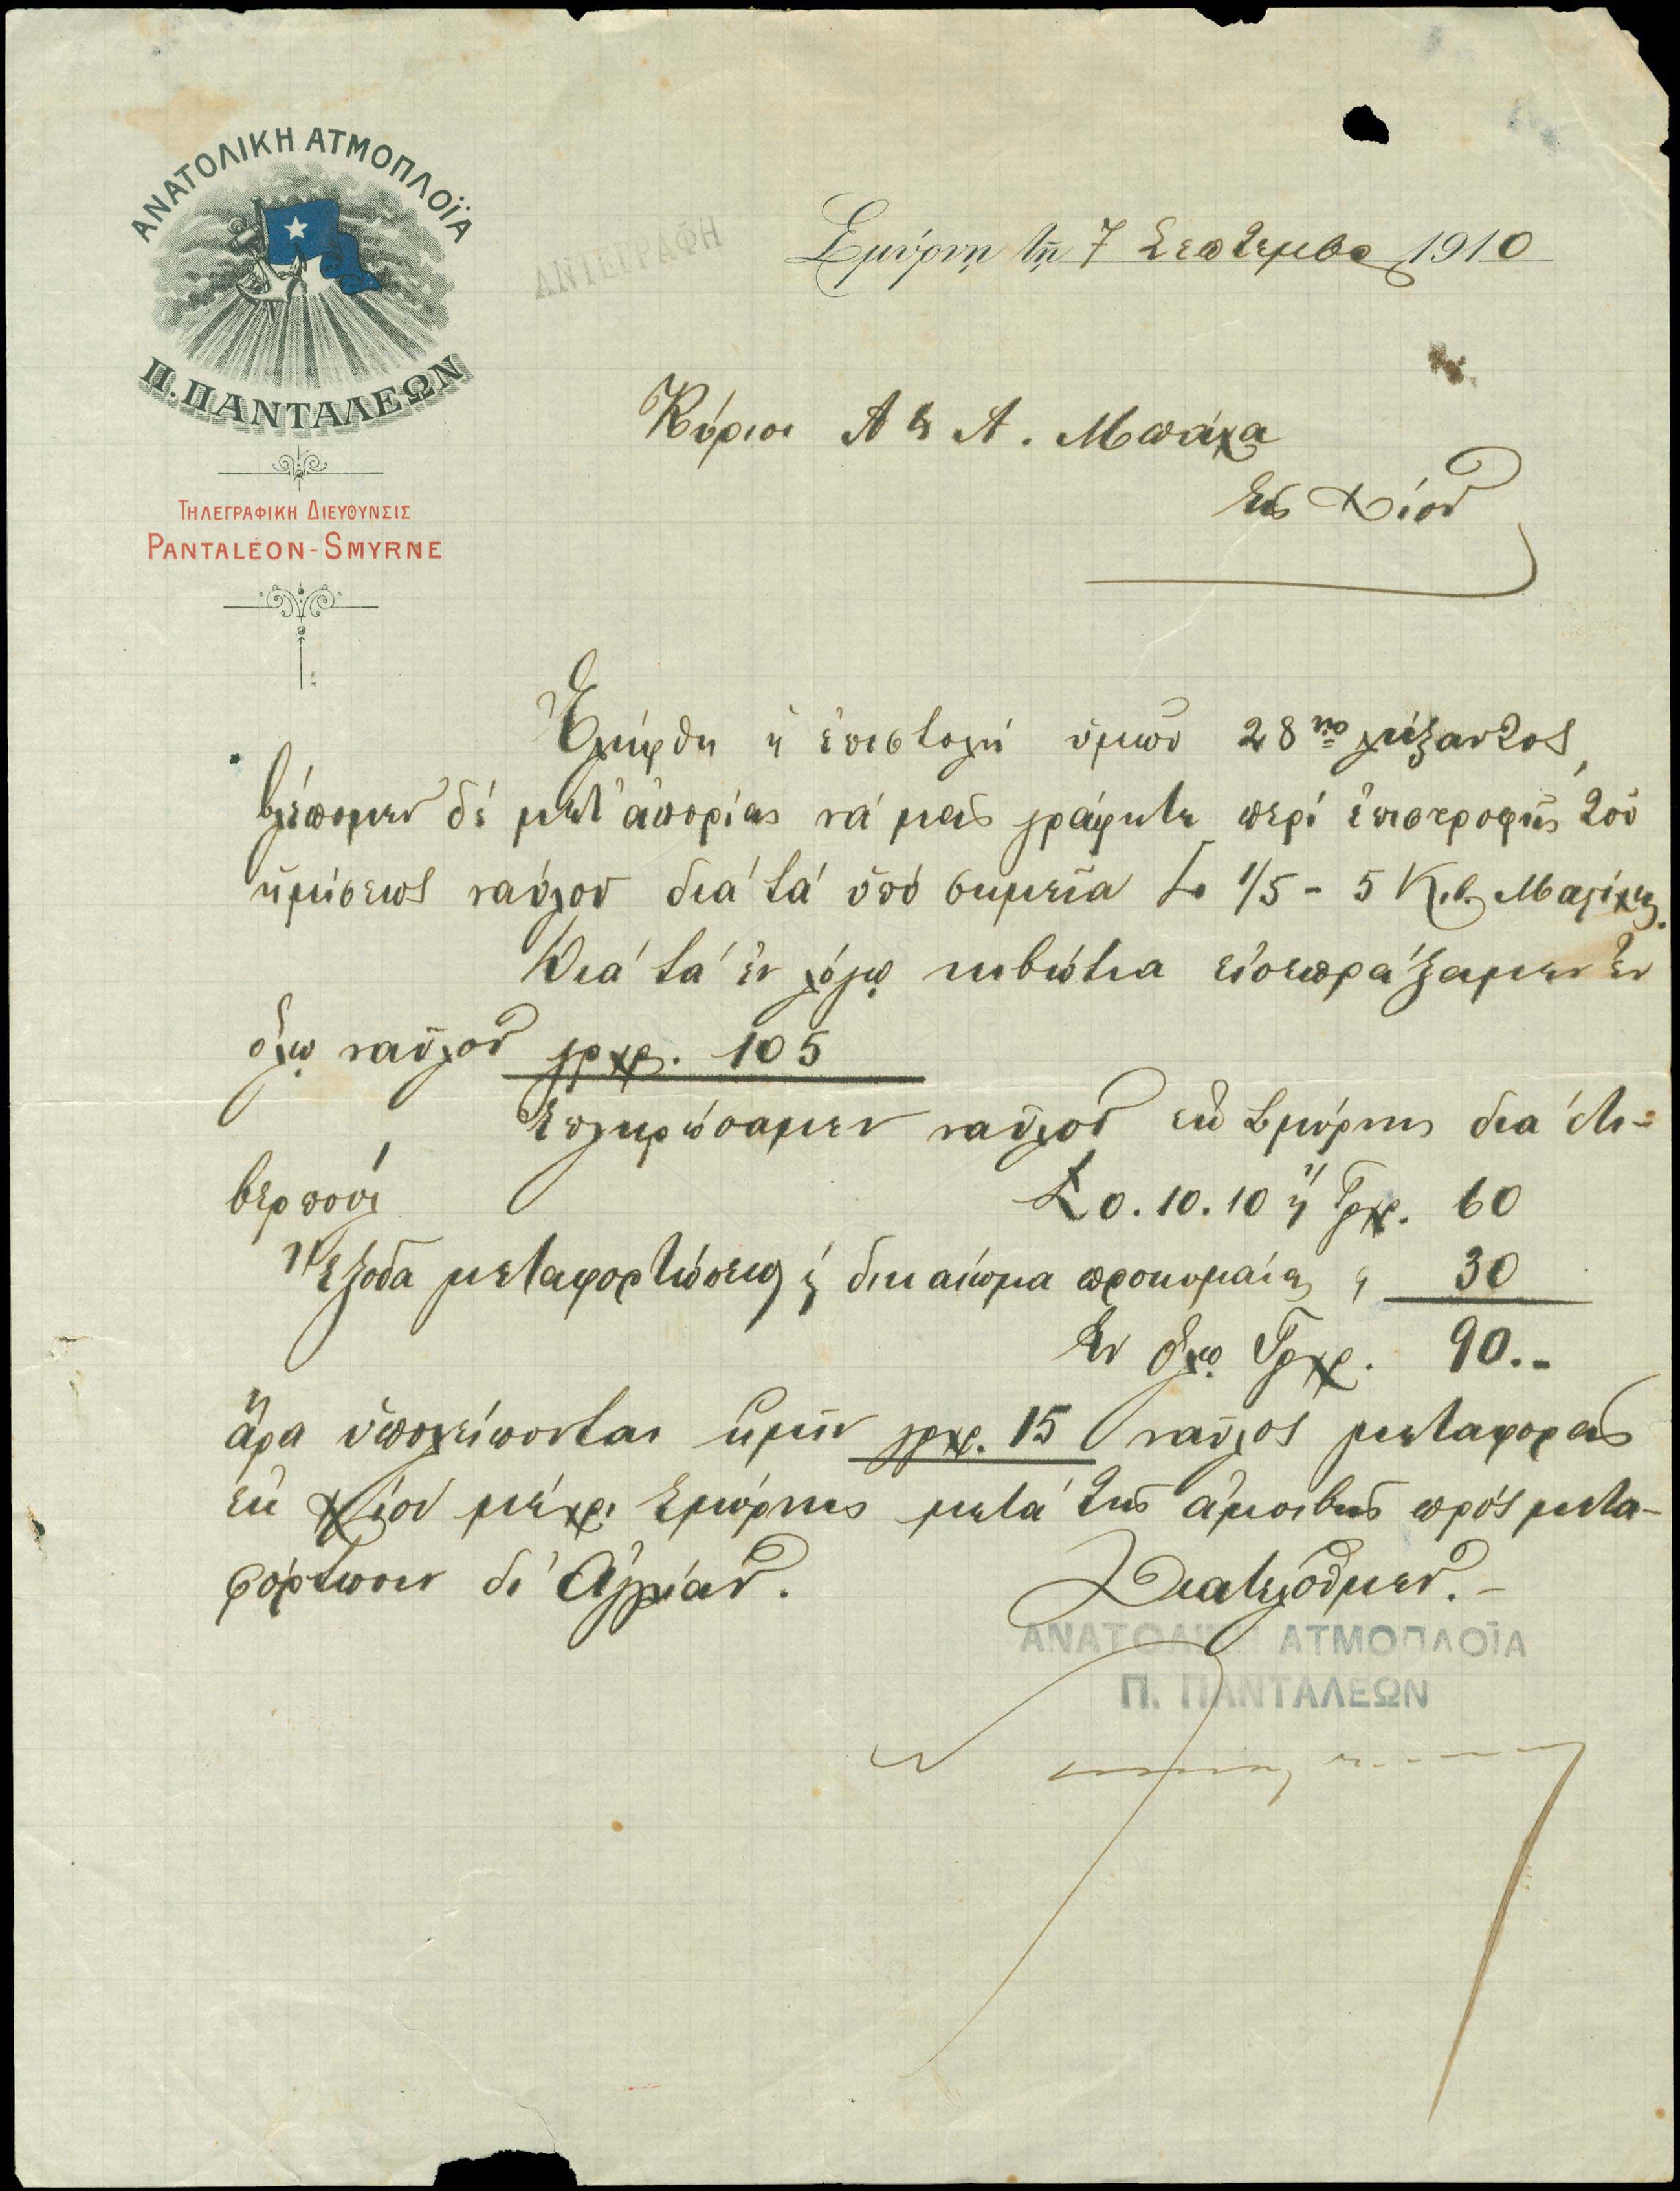 ΑΝΑΤΟΛΙΚΗ ΑΤΜΟΠΛΟΪΑ
Π. ΠΑΝΤΑΛΕΩΝ
ΤΗΛΕΓΡΑΦΙΚΗ ΔΙΕΥΘΥΝΣΙΣ
PANTALÉON-SMYRNE
ΑΝΤΕΓΡΑΦΗ
Σμύρνη τῇ 7 Σεπτεμβρ 1910
Κύριοι Α & Α. Μπάχα
Εἰς Χίον
Ἐλήφθη ἡ ἐπιστολή ὑμῶν 28ης λήξαντος,
βλέπομεν δέ μετ' ἀπορίας νά μᾶς γράφητε περί ἐπιστροφῆς τοῦ
ἡμίσεως ναύλου διά τά ὑπό σημεῖα 1/5 - 5 Κιβ.
Διά τά ἐν λόγῳ κιβώτια εἰσεπράξαμεν ἐν
ὅλῳ ναῦλον γρχρ. 105
Ἐπληρώσαμεν ναῦλον ἐκ Σμύρνης διά Λι-
βερπούλ £ 0.10.10 ἤ Γρχρ. 60
Ἔξοδα μεταφορτώσεως & δικαίωμα προκυμαίας " 30
Ἐν ὅλῳ Γρχρ. 90.-
ἄρα ὑπολείπονται ἡμῖν γρχρ. 15 ναῦλος μεταφορᾶς
ἐκ Χίου μέχρι Σμύρνης μετά τῆς ἀμοιβῆς πρός μετα-
φόρτωσιν δι' Ἀγγλίαν. Διατελοῦμεν.-
ΑΝΑΤΟΛΙΚΗ ΑΤΜΟΠΛΟΪΑ
Π. ΠΑΝΤΑΛΕΩΝ